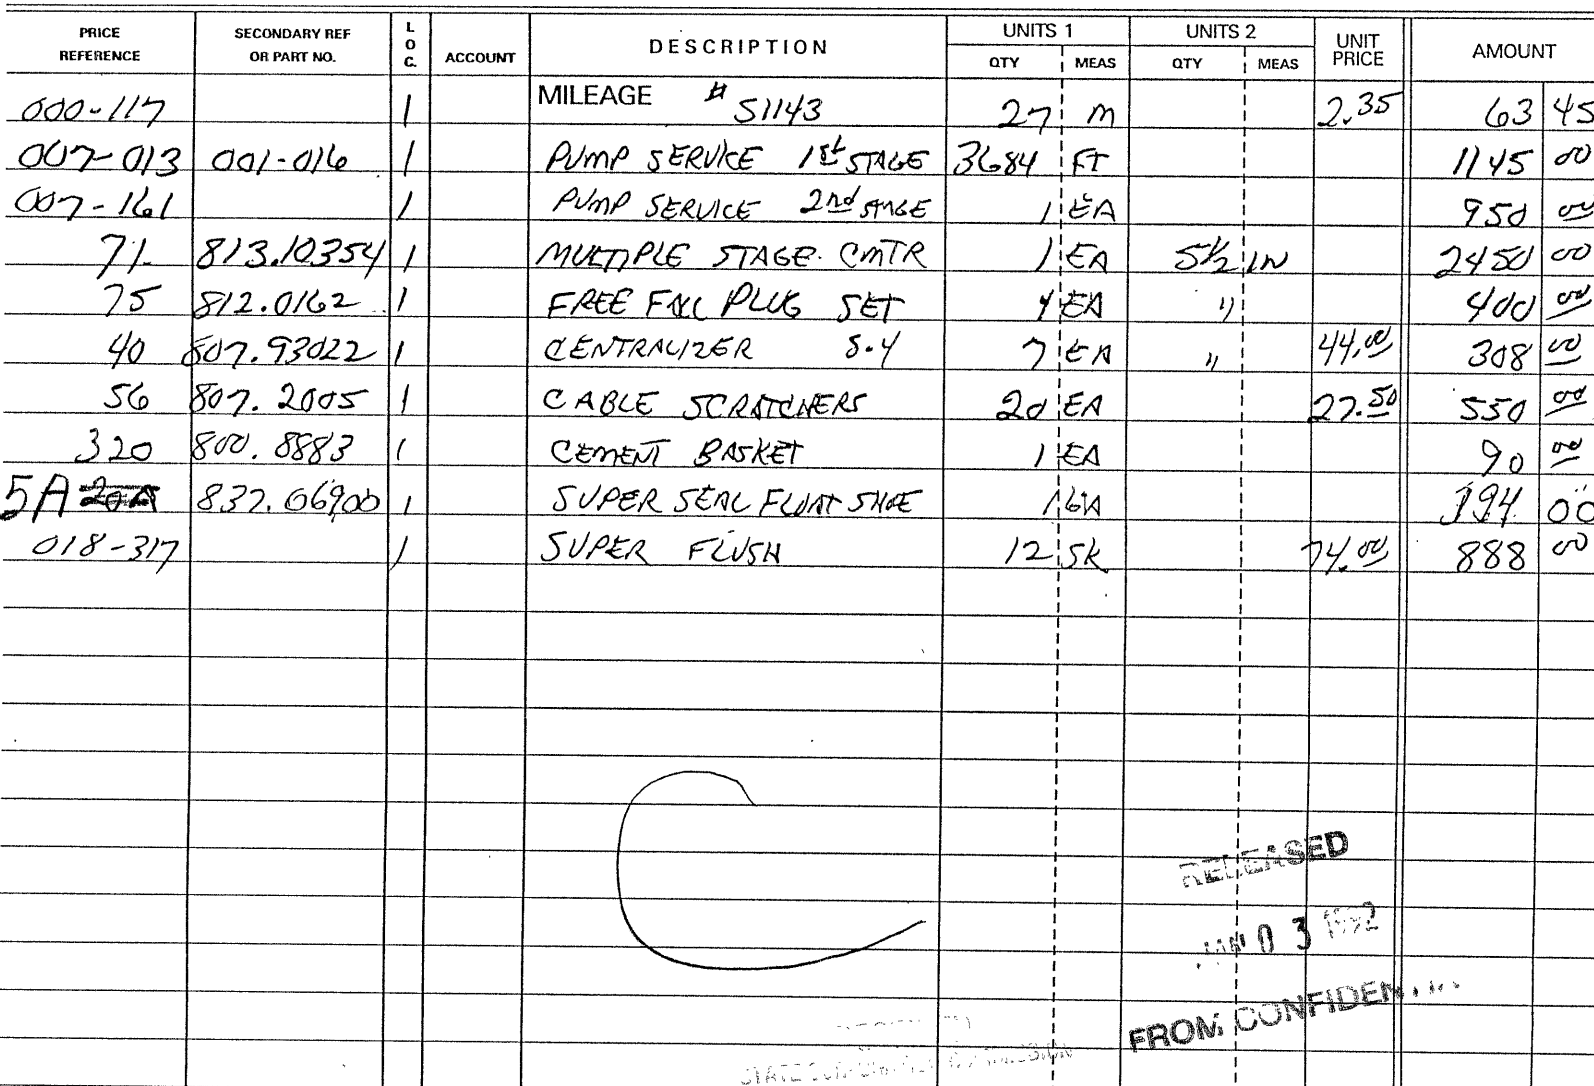 PRICE REFERENCE SECONDARY REF OR PART NO. LOC. ACCOUNT DESCRIPTION UNITS 1 QTY MEAS UNITS 2 QTY MEAS UNIT PRICE AMOUNT
000-117 1 MILEAGE # 51143 27 M 2.35 63 45
007-013 001-016 1 PUMP SERVICE 1st STAGE 3684 FT 1145 00
007-161 1 PUMP SERVICE 2nd STAGE 1 EA 950 00
71 813.10354 1 MULTIPLE STAGE CMTR 1 EA 5½ IN 2450 00
75 812.0162 1 FREE FALL PLUG SET 1 EA " 400 00
40 807.93022 1 CENTRALIZER S-4 7 EA " 44.00 308 00
56 807.2005 1 CABLE SCRATCHERS 20 EA 27.50 550 00
320 800.8883 1 CEMENT BASKET 1 EA 90 00
5A 837.06900 1 SUPER SEAL FLOAT SHOE 1 EA 194 00
018-317 1 SUPER FLUSH 12 SK 74.00 888 00
RELEASED
JAN 03 1992
FROM CONFIDEN